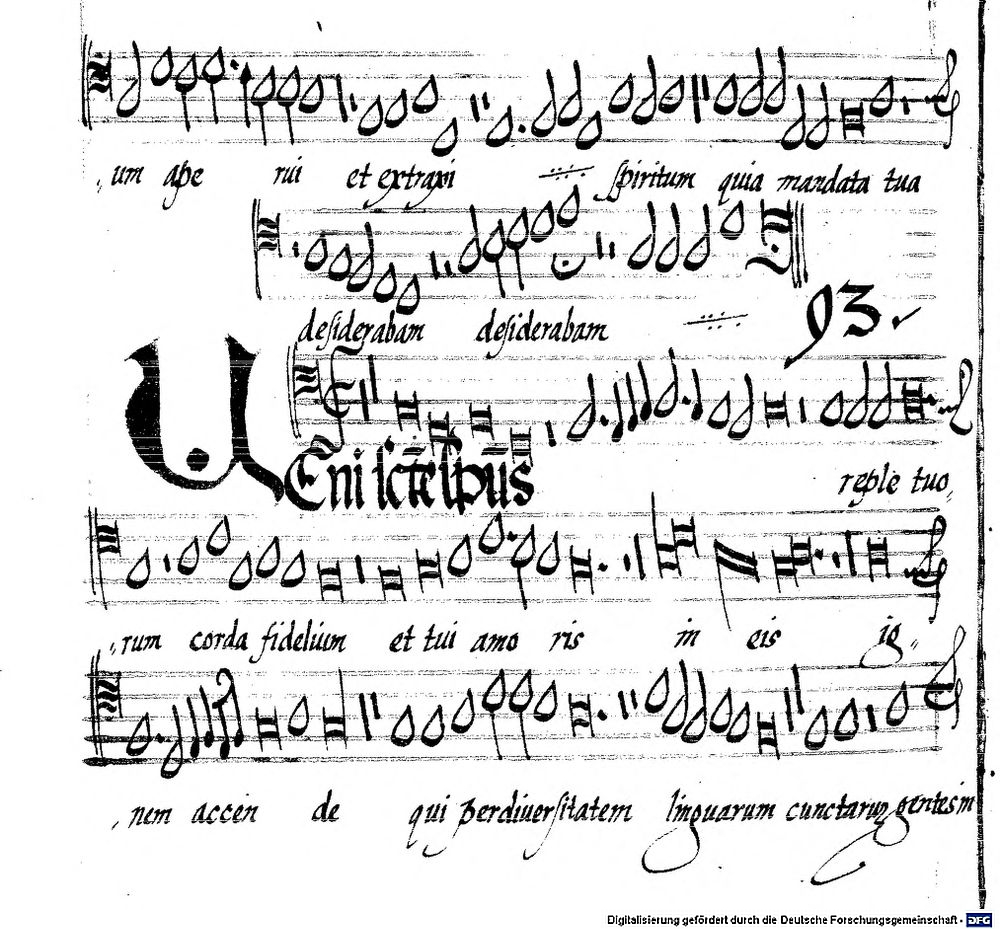 um ape rui et extraxi spiritum quia mandata tua
desiderabam desiderabam
93.
VEni sct̄e sp̄us reple tuo,,
,,rum corda fidelium et tui amo ris in eis ig,,
,,nem accen de qui per diversitatem linguarum cunctarum gentes in
Digitalisierung gefördert durch die Deutsche Forschungsgemeinschaft - DFG